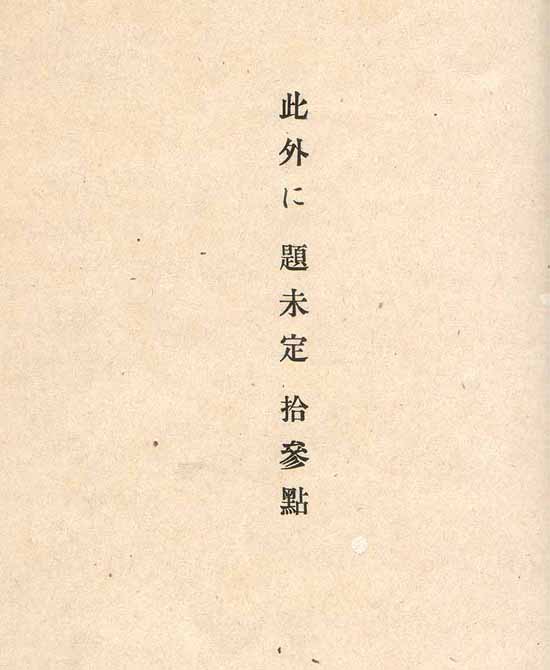 此外に 題未定 拾參點